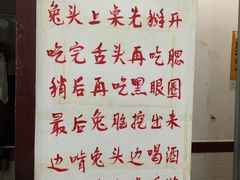 兔头上桌先掰开
吃完舌头再吃腮
稍后再吃黑眼圈
最后兔脸挖出来
边啃兔头边喝酒